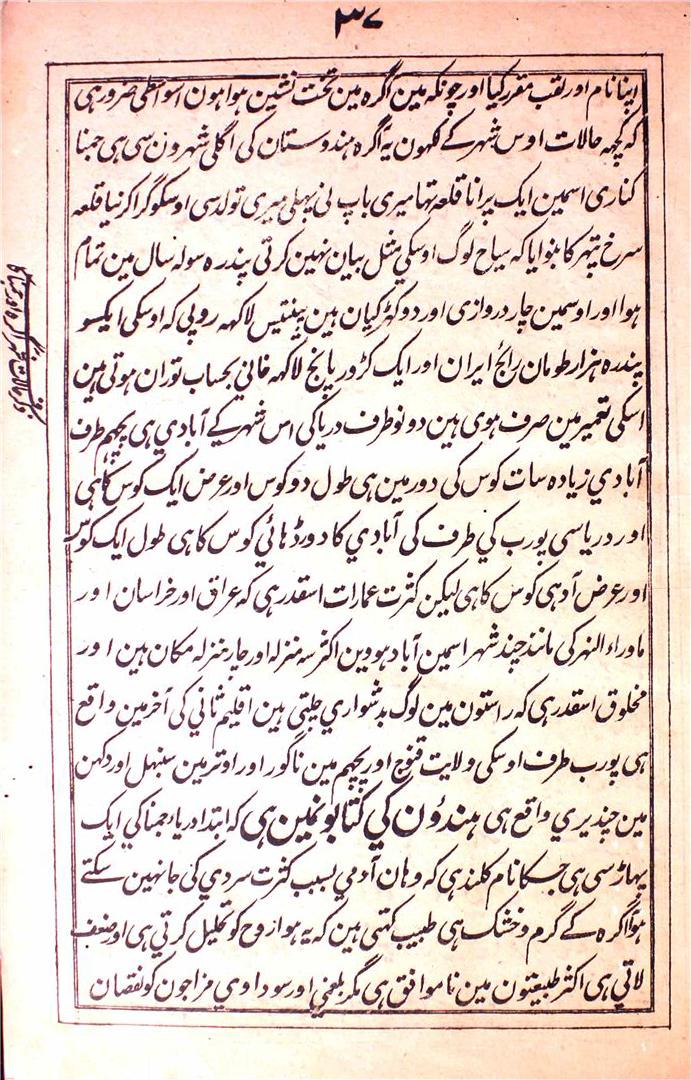 ۳۷
اپنا نام اور لقب مقرر کیا اور چونکہ مین آگرہ مین تخت نشین ہوا ہون اسواسطی ضرور ہی
کہ کچہہ حالات اوس شہر کے لکہون یہ آگرہ ہندوستان کی اگلی شہرون سی ہی جمنا
کناری اسمین ایک پرانا قلعہ تہا میری باپ نی پہلی میری تولد سی اوسکو گرا کر نیا قلعہ
سرخ پتہر کا بنوایا کہ سیاح لوگ اوسکي مثل بیان نہین کرتی پندرہ سولہ سال مین تمام
ہوا اور اوسمین چار دروازی اور دو کہڑکیان ہین پینتیس لاکہہ روپی کہ اوسکی ایکسو
پندرہ ہزار طومان رائج ایران اور ایک کڑور پانچ لاکہہ خانی بحساب توران ہوتی ہین
اسکی تعمیر مین صرف ہوی ہین دونو طرف دریا کی اس شہر کے آبادي ہی پچہم طرف
آبادي زیادہ سات کوس کی دور مین ہی طول دو کوس اور عرض ایک کوس کا ہی
اور دریا سی پورب کي طرف کی آبادي کا دور ڈہائي کوس کا ہی طول ایک کوس
اور عرض آدہی کوس کا ہی لیکن کثرت عمارات اسقدر ہی کہ عراق اور خراسان اور
ماوراء النہر کی مانند چند شہر اسمین آباد ہووین اکثر سہ منزلہ اور چار منزلہ مکان ہین اور
مخلوق اسقدر ہی کہ راستون مین لوگ بدشواري چلتی ہین اقلیم ثاني کی آخر مین واقع
ہی پورب طرف اوسکی ولایت قنوج اور پچہم مین ناگور اور اوتر مین سنبہل اور دکہن
مین چندیري واقع ہی ہندؤن کي کتابونمین ہی کہ ابتدا دریاء جمنا کي ایک
پہاڑ سی ہی جسکا نام کلند ہی کہ وہان آدمي بسبب کثرت سردي کی جا نہین سکتے
ہوا آگرہ کے گرم و خشک ہی طبیب کہتی ہین کہ یہ ہوا روح کو تحلیل کرتي ہی اور ضعف
لاتي ہی اکثر طبیعتون مین ناموافق ہی مگر بلغمي اور سوداوي مزاجون کو نقصان